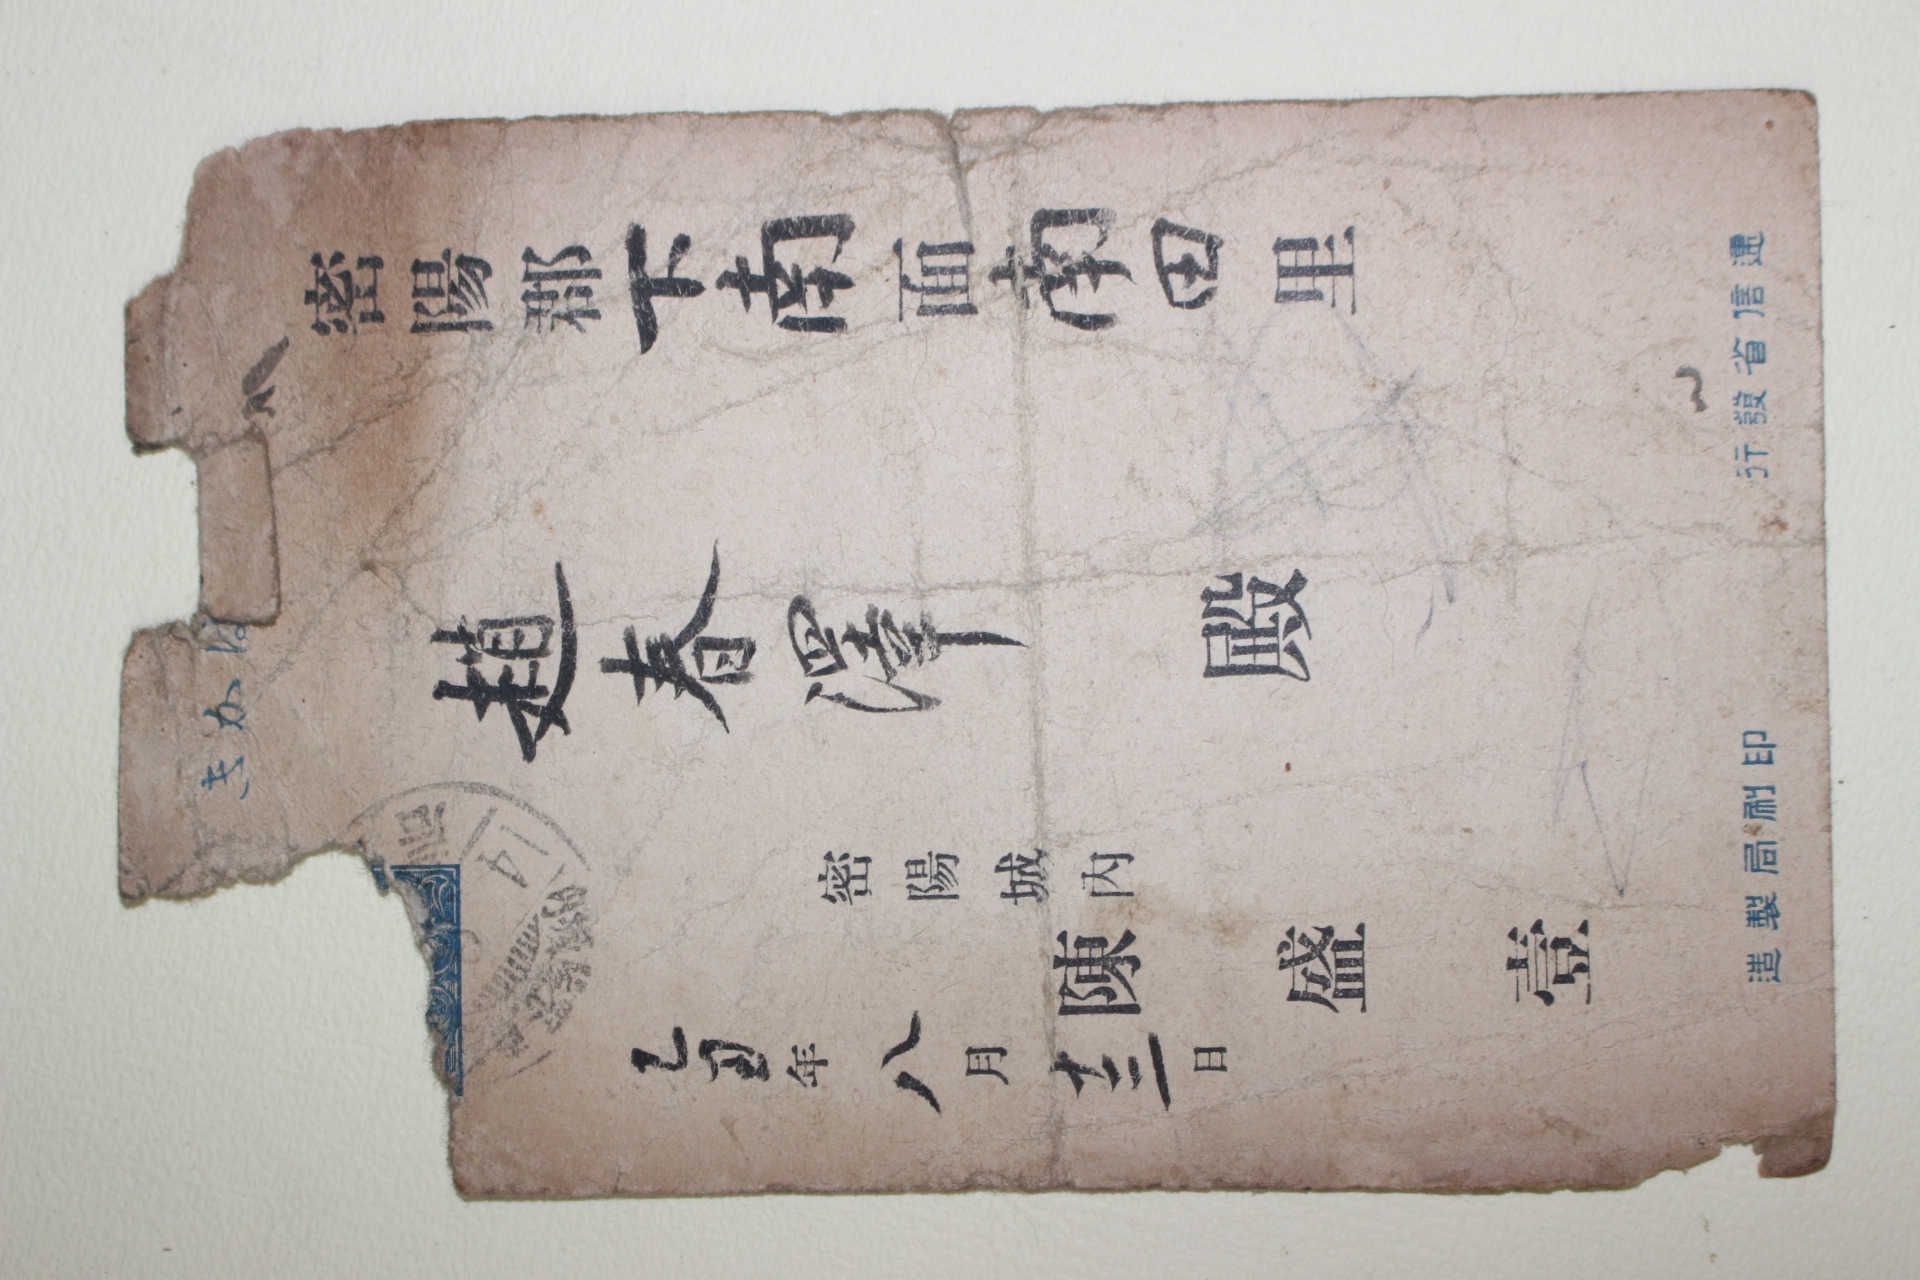 はかき
密陽郡下南面南田里
趙春澤殿
密陽城內
陳盛壹
乙丑年八月十三日
14
遞信省發行
印刷局製造